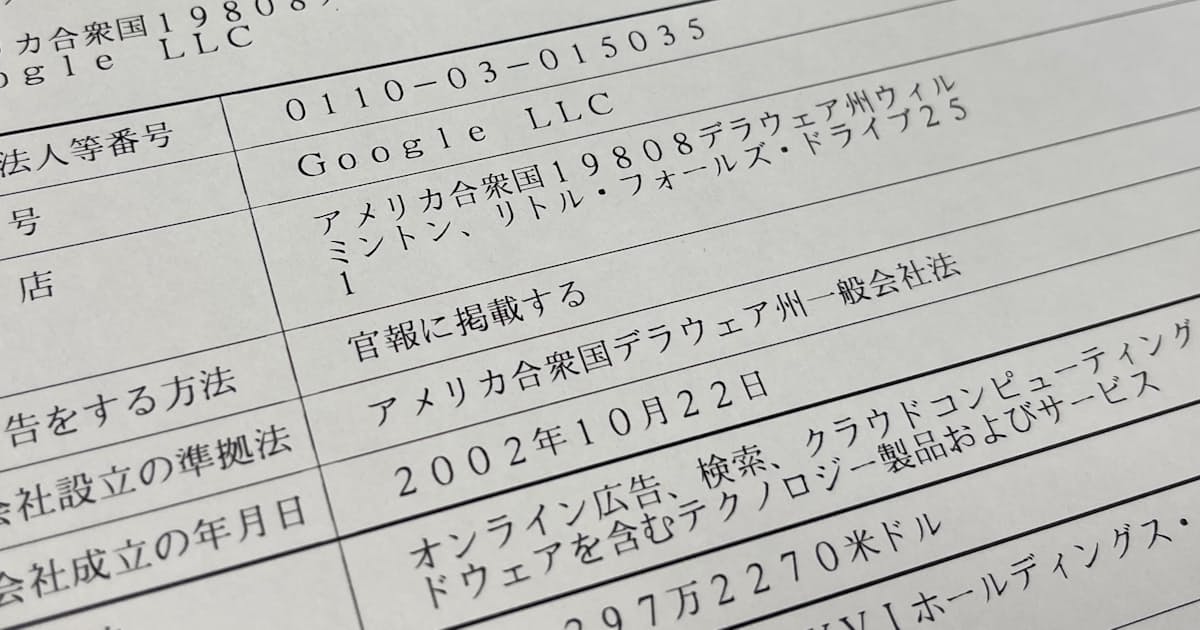 カ合衆国１９８０８
ｏｇｌｅ　ＬＬＣ
法人等番号
０１１０－０３－０１５０３５
号
Ｇｏｏｇｌｅ　ＬＬＣ
店
アメリカ合衆国１９８０８デラウェア州ウィル
ミントン、リトル・フォールズ・ドライブ２５
１
告をする方法
官報に掲載する
会社設立の準拠法
アメリカ合衆国デラウェア州一般会社法
会社成立の年月日
２００２年１０月２２日
オンライン広告、検索、クラウドコンピューティング
ドウェアを含むテクノロジー製品およびサービス
２９７万２２７０米ドル
ＸＶＩホールディングス・